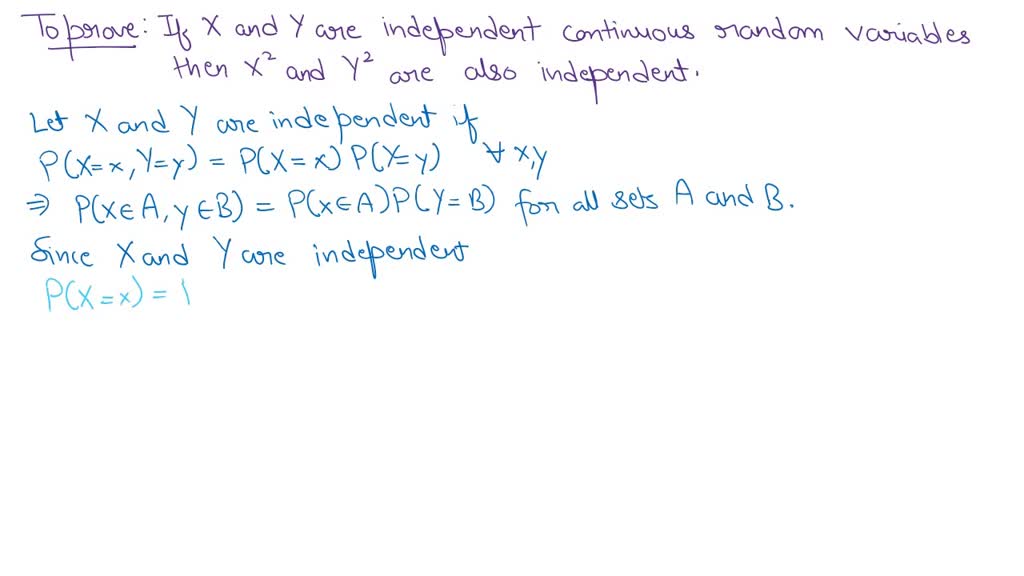 To prove: If X and Y are independent continuous random variables
then X² and Y² are also independent.
Let X and Y are independent if
P(X=x, Y=y) = P(X=x) P(Y=y) ∀ x,y
⇒ P(X∈A, y∈B) = P(x∈A)P(Y=B) for all sets A and B.
Since X and Y are independent
P(X=x) = 1